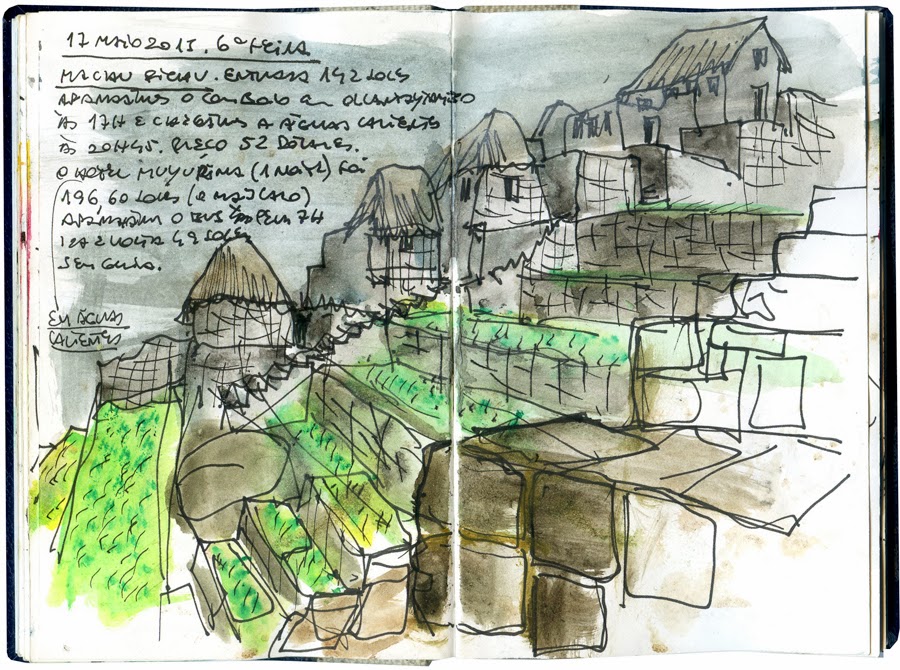 17 MAIO 2013. 6ª FEIRA
MACHU PICHU. ENTRADA SOLES
APANHAMOS O COMBOIO EM OLLANTAYTAMBO
ÀS 17H E CHEGÁMOS A ÁGUAS CALIENTES
ÀS 20H45. PREÇO 52 DÓLARES.
O HOTEL (1 NOITE) FOI
196,60 SOLES (O MAIS CARO)
O BUS 7H
IDA E VOLTA 49 SOLES
SEM GUIA.
EM ÁGUAS
CALIENTES